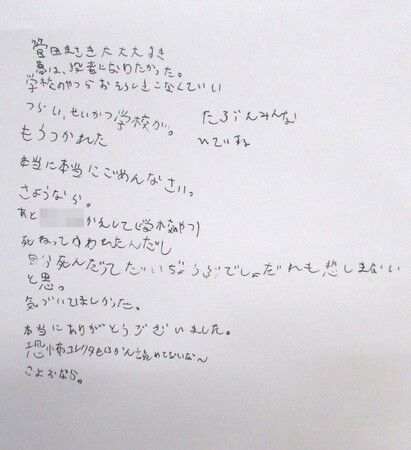 菅田まさき大大大すき
夢は、役者になりたかった。
学校のやつらおそうしきこなくていい
つらい、せいかつ学校が。
たぶんみんな
もうつかれた
本当に本当にごめんなさい。
さようなら。
あと かんして(学校のやつ)
死ねってゆわれたんだし
自分死んだってだいじょうぶでしょだれも悲しまない
と思。
気づいてほしかった。
本当にありがとうございました。
恐怖コレクター
さよおなら。